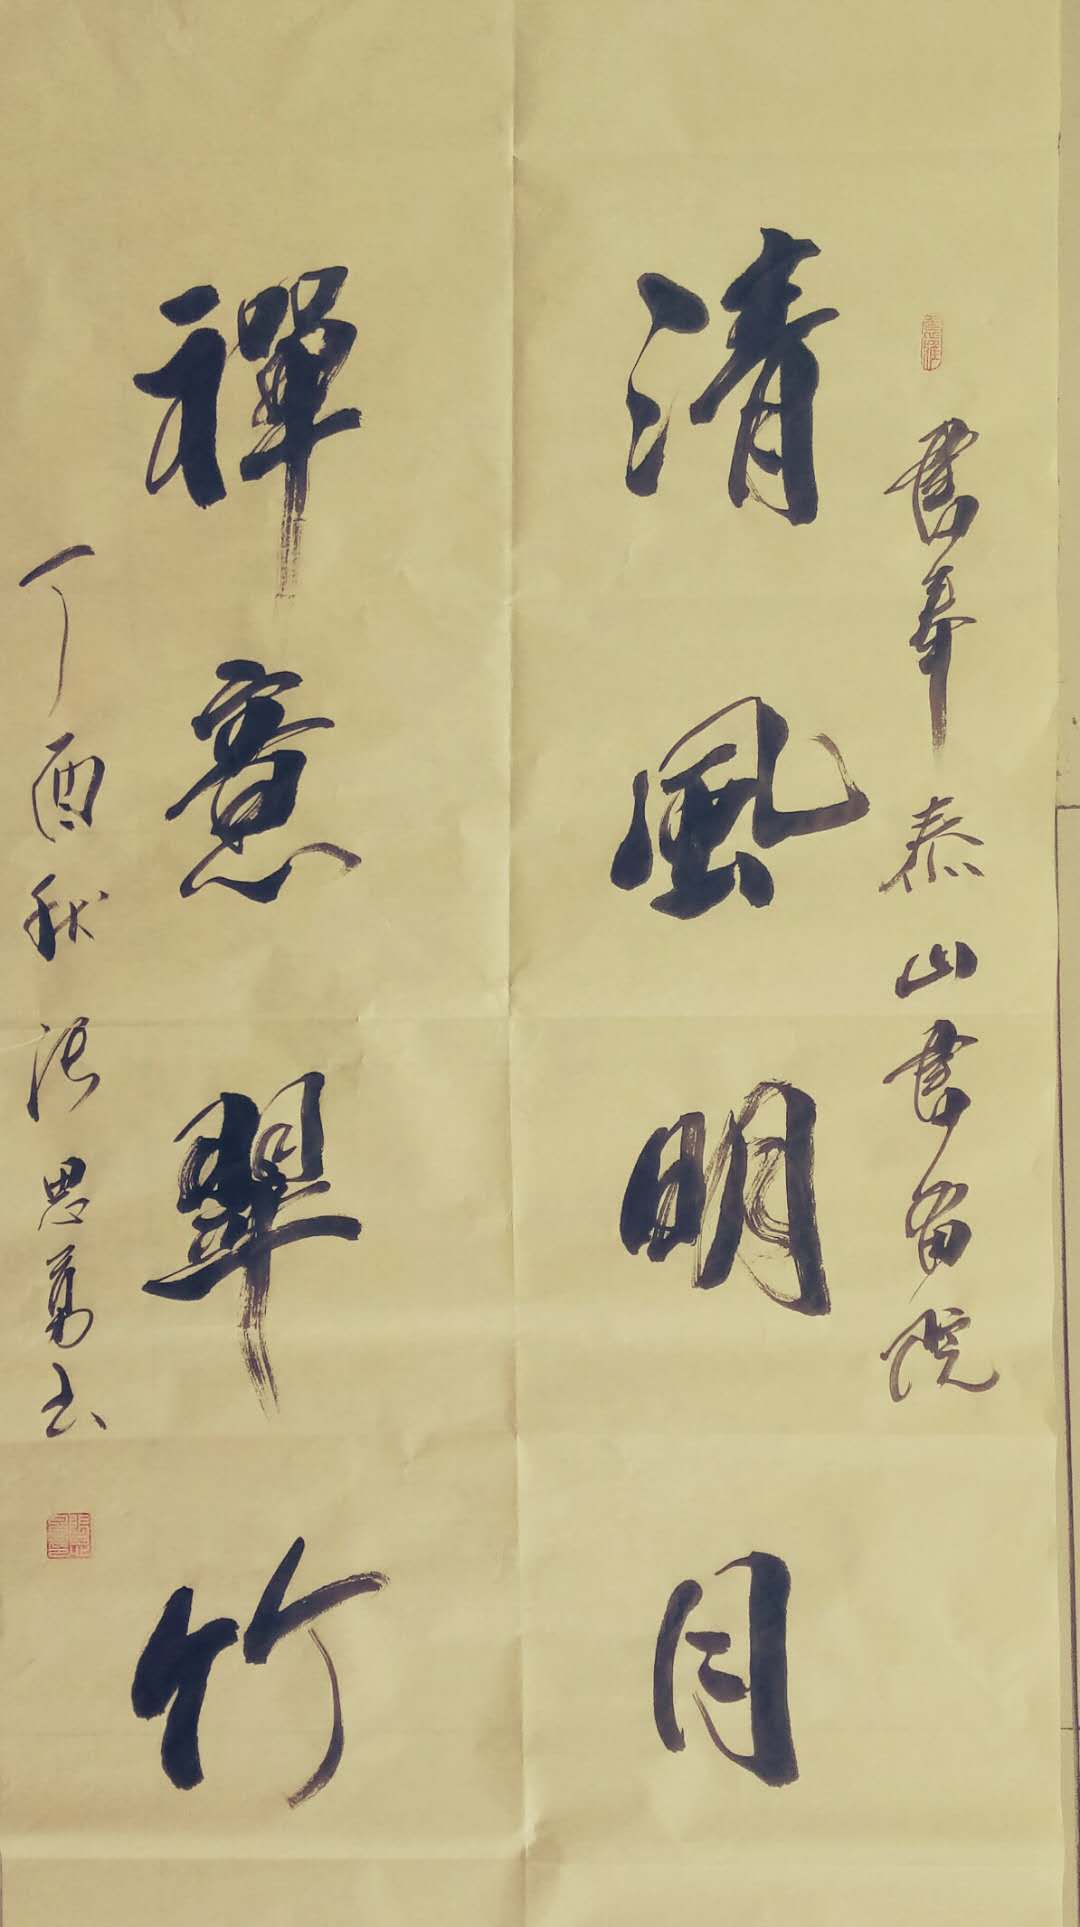 書奉泰山書畫院
清風明月
禪意翠竹
丁酉秋張思勇書